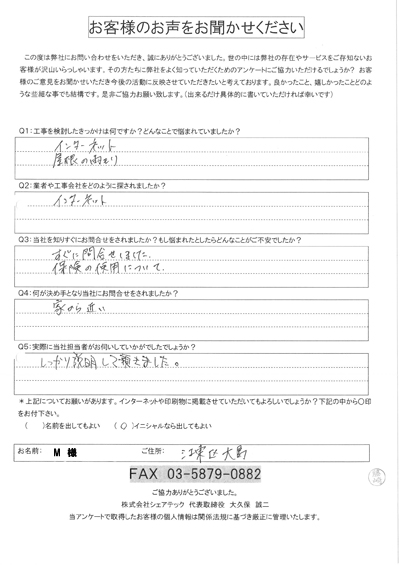 お客様のお声をお聞かせください
この度は弊社にお問い合わせをいただき、誠にありがとうございました。世の中には弊社の存在やサービスをご存知ないお
客様が沢山いらっしゃいます。その方たちに弊社をよく知っていただくためのアンケートにご協力いただけるでしょうか？ お客
様のご意見をお聞かせいただき今後の活動に反映させていただきたいと考えております。良かったこと、嬉しかったことどのよ
うな些細な事でも結構です。是非ご協力お願い致します。（出来るだけ具体的に書いていただければ幸いです）
Q1：工事を検討したきっかけは何ですか？どんなことで悩まれていましたか？
インターネット
屋根の雨もり
Q2：業者や工事会社をどのように探されましたか？
インターネット
Q3：当社を知りすぐにお問合せをされましたか？もし悩まれたとしたらどんなことがご不安でしたか？
すぐに問合せしました。
保険の使用について
Q4：何が決め手となり当社にお問合せをされましたか？
家から近い
Q5：実際に当社担当者がお伺いしていかがでしたでしょうか？
しっかり説明して頂きました。
＊上記についてお願いがあります。インターネットや印刷物に掲載させていただいてもよろしいでしょうか？下記の中から〇印
をお付下さい。
（　）名前を出してもよい　（〇）イニシャルなら出してもよい
お名前： M 様　ご住所： 江東区大島
FAX 03-5879-0882
ご協力ありがとうございました。
株式会社シェアテック 代表取締役 大久保 誠二
当アンケートで取得したお客様の個人情報は関係法規に基づき厳正に管理いたします。